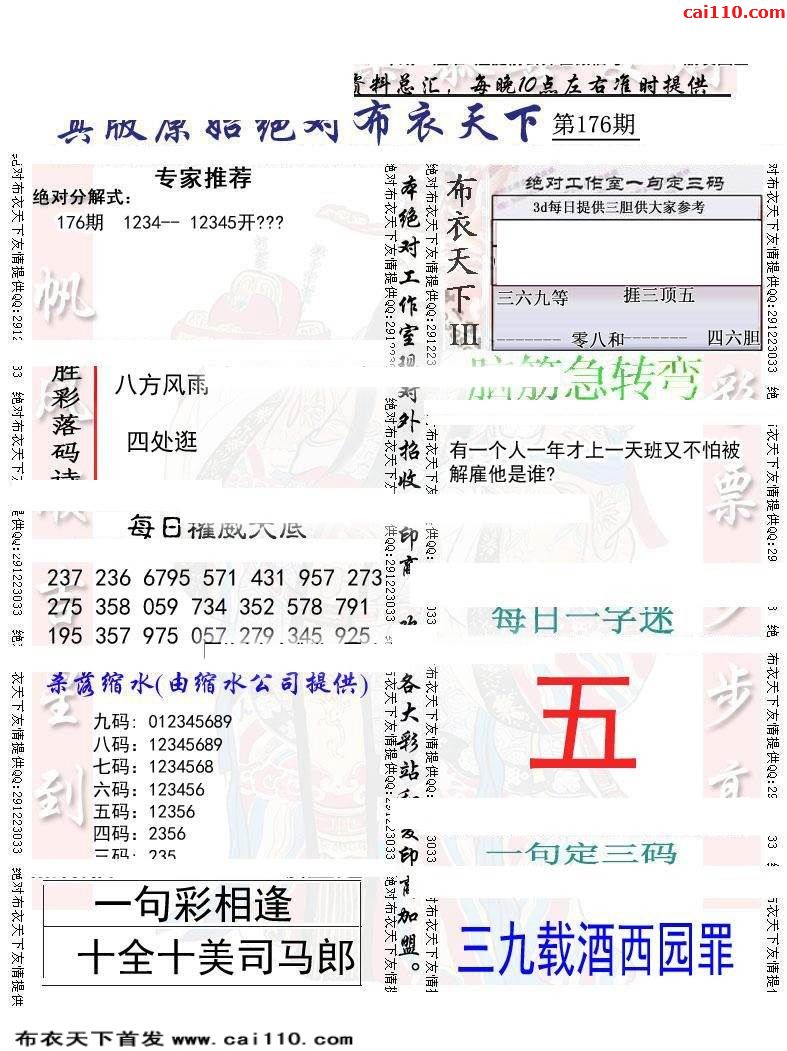 cai110.com
资料总汇，每晚10点左右准时提供
真版原始绝对布衣天下 第176期
专家推荐
绝对分解式:
176期 1234-- 12345开???
本绝对工作室现对外招收
布衣天下III
绝对工作室一句定三码
3d每日提供三胆供大家参考
三六九等 捱三顶五
-------- 零八和------- 四六胆
胜彩落码诗
八方风雨
四处逛
脑筋急转弯
有一个人一年才上一天班又不怕被
解雇他是谁?
每日摧威大底
237 236 6795 571 431 957 273
275 358 059 734 352 578 791
195 357 975 057 279 345 925
每日一字迷
五
杀落缩水(由缩水公司提供)
九码: 012345689
八码: 12345689
七码: 1234568
六码: 123456
五码: 12356
四码: 2356
三码: 235
各大彩站和
及印商加盟。
一句定三码
三九载酒西园罪
一句彩相逢
十全十美司马郎
绝对布衣天下友情提供QQ:291223033
彩票
步
布衣天下首发 www.cai110.com